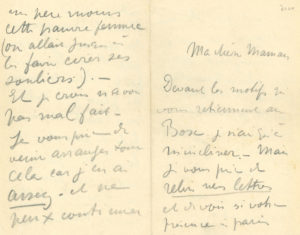 Ma chère Maman
Devant les motifs qui
vous retiennent au
Bosc je n'ai qu'à
m'incliner. — Mais
je vous prie de
relire mes lettres
et de voir si votre
présence à Paris
un père moins
cette pauvre femme
(on allait jusqu'à
lui faire cirer ses
souliers). —
Et je crois n'avoir
pas mal fait —
Je vous prie de
venir arranger tout
cela car j'en ai
assez — et ne
peux continuer